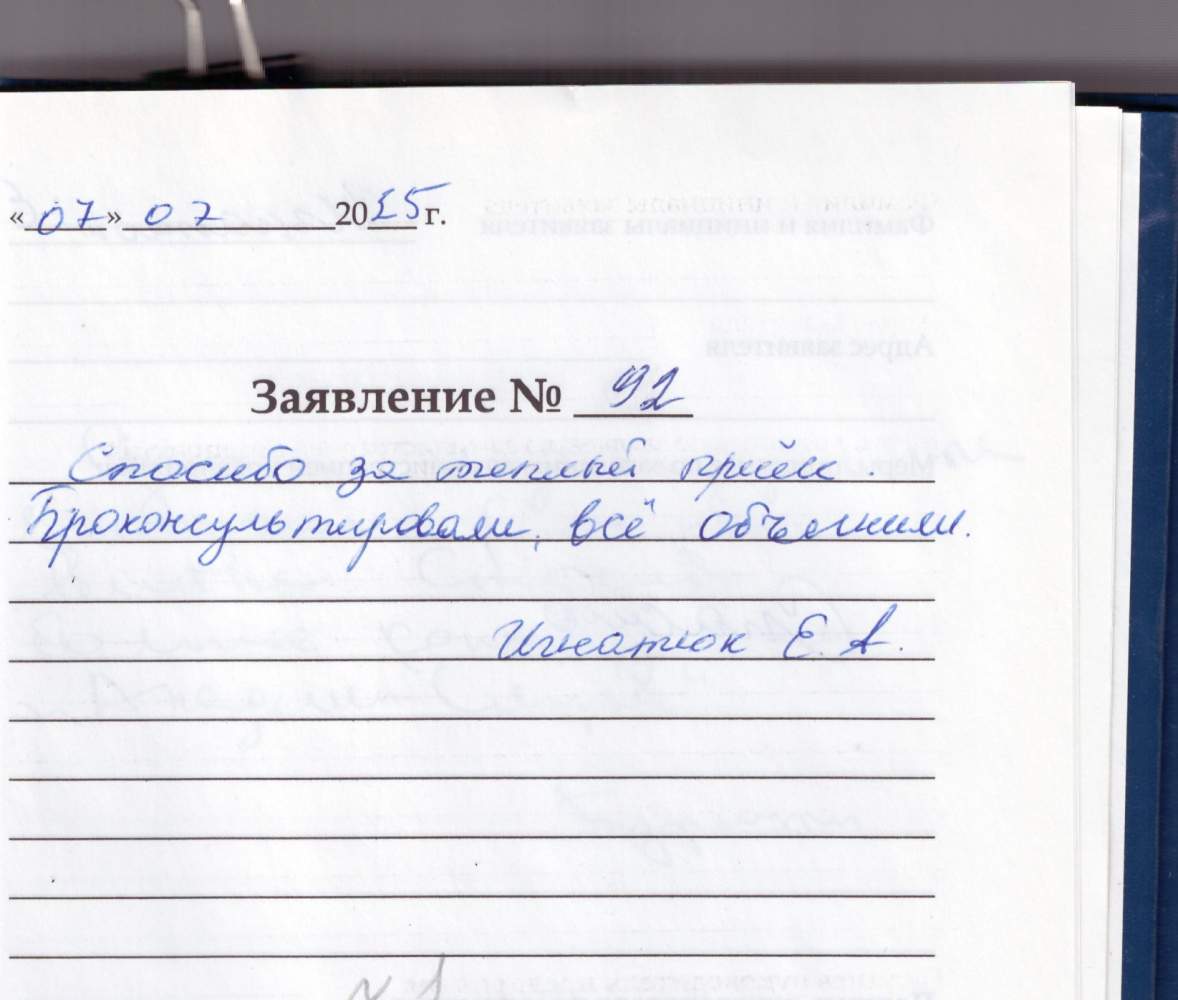 «07» 07 2025 г.
Заявление № 92
Спасибо за теплый приём.
Проконсультировали, всё объяснили.
Игнатюк Е. А.